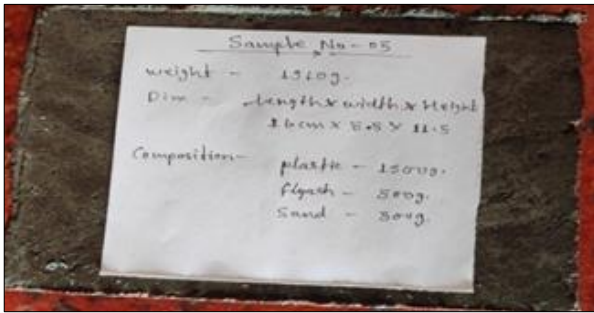 Sample No - 05
weight - 1910g.
Dim - Length x width x Height
16cm x 5.5 x 11.5
Composition - plastic - 1500g.
flyash - 500g.
Sand - 500g.